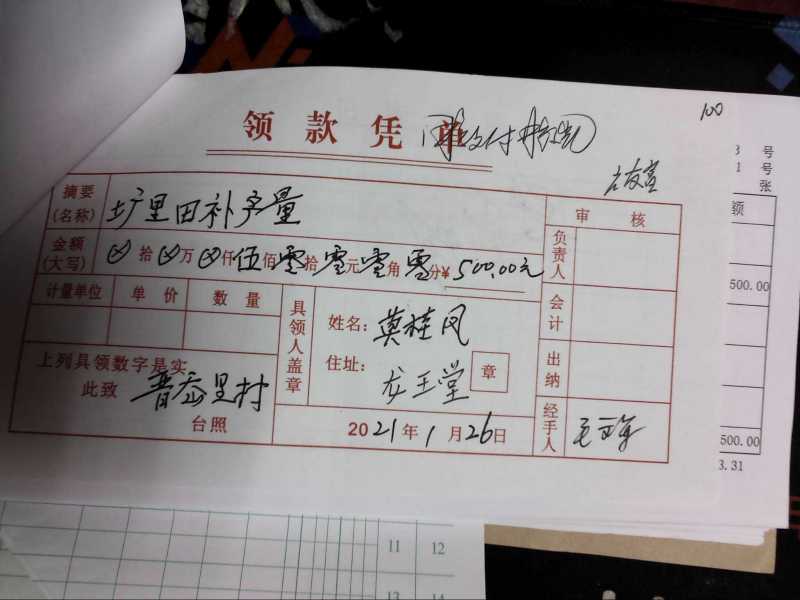 100
领款凭单
摘要(名称) 圹里田补产量
金额(大写) ⊗拾⊗万⊗仟伍佰零拾零元零角零分¥500.00元
计量单位 单价 数量
具领人盖章
姓名：莫桂凤
住址：龙王堂 章
上列具领数字是实
此致 普岙里村
台照
2021年1月26日
审核
负责人
会计
出纳
经手人
号
号
张
额
500.00
500.00
3.31
11 12
13 14